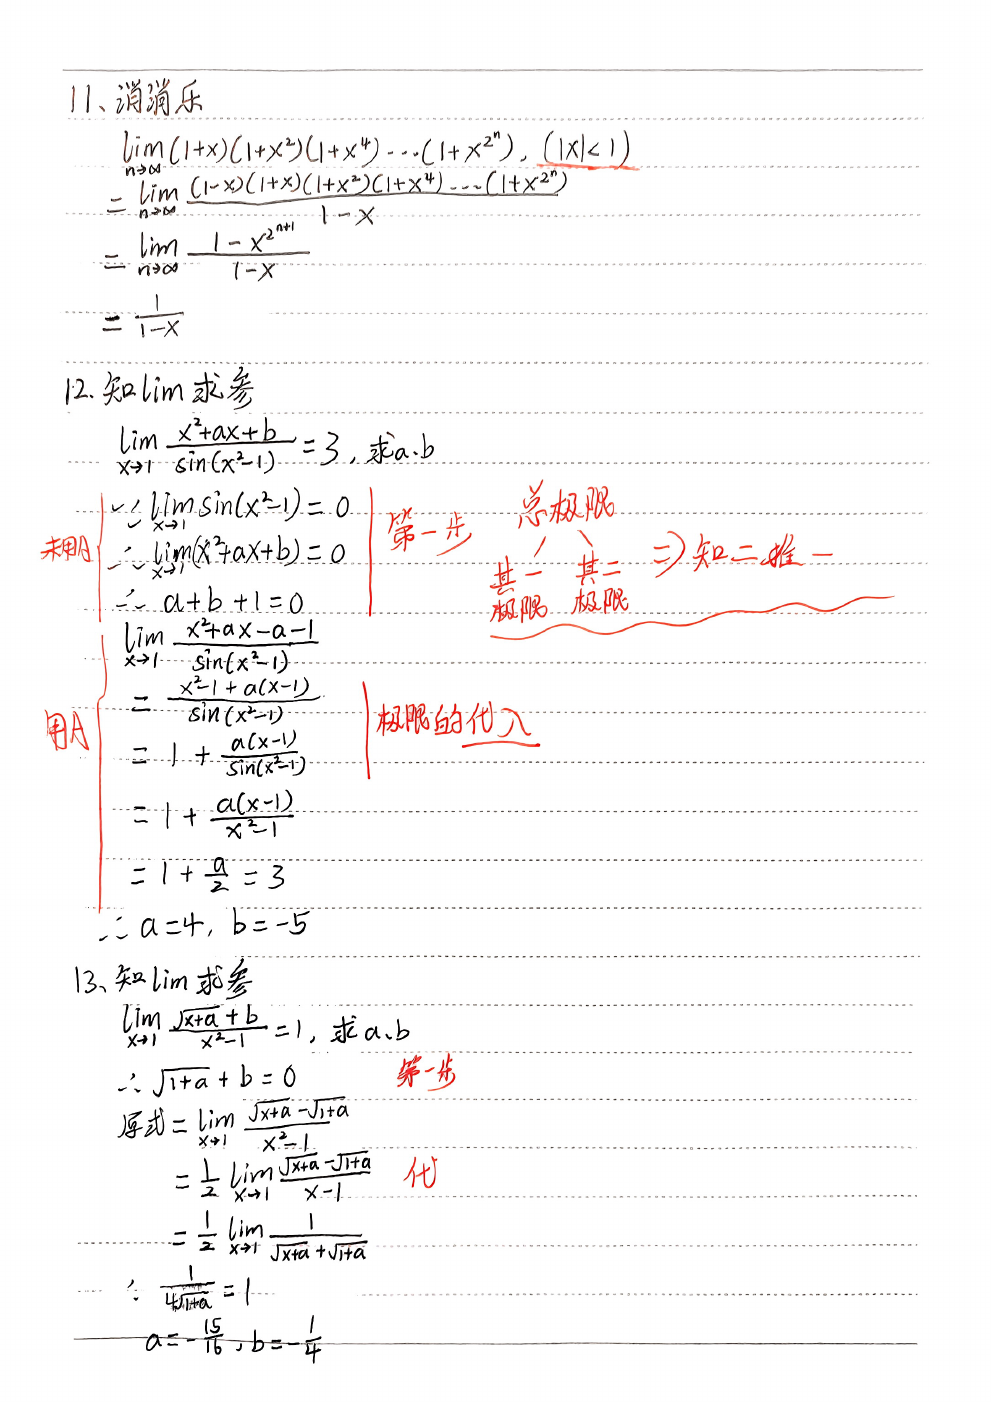 11、消消乐
lim n→∞ (1+x)(1+x²)(1+x⁴)···(1+x^{2^n}), (|x|<1)
= lim n→∞ (1-x)(1+x)(1+x²)(1+x⁴)···(1+x^{2^n}) / (1-x)
= lim n→∞ (1-x^{2^{n+1}}) / (1-x)
= 1/(1-x)
12. 知lim求参
lim x→1 (x²+ax+b)/sin(x²-1) = 3, 求a、b
未用A
∵ lim x→1 sin(x²-1) = 0
∴ lim x→1 (x²+ax+b) = 0
∴ a+b+1=0
第一步
总极限
其一极限 其二极限
⇒ 知二推一
用A
lim x→1 (x²+ax-a-1)/sin(x²-1)
= (x²-1+a(x-1))/sin(x²-1)
= 1 + a(x-1)/sin(x²-1)
极限的代入
= 1 + a(x-1)/(x²-1)
= 1 + a/2 = 3
∴ a=4, b=-5
13、知lim求参
lim x→1 (√(x+a) + b)/(x²-1) = 1, 求a、b
∴ √(1+a) + b = 0 第一步
原式 = lim x→1 (√(x+a) - √(1+a))/(x²-1)
= 1/2 lim x→1 (√(x+a) - √(1+a))/(x-1) 代
= 1/2 lim x→1 1/(√(x+a) + √(1+a))
∴ 1/(4√(1+a)) = 1
a = -15/16, b = -1/4